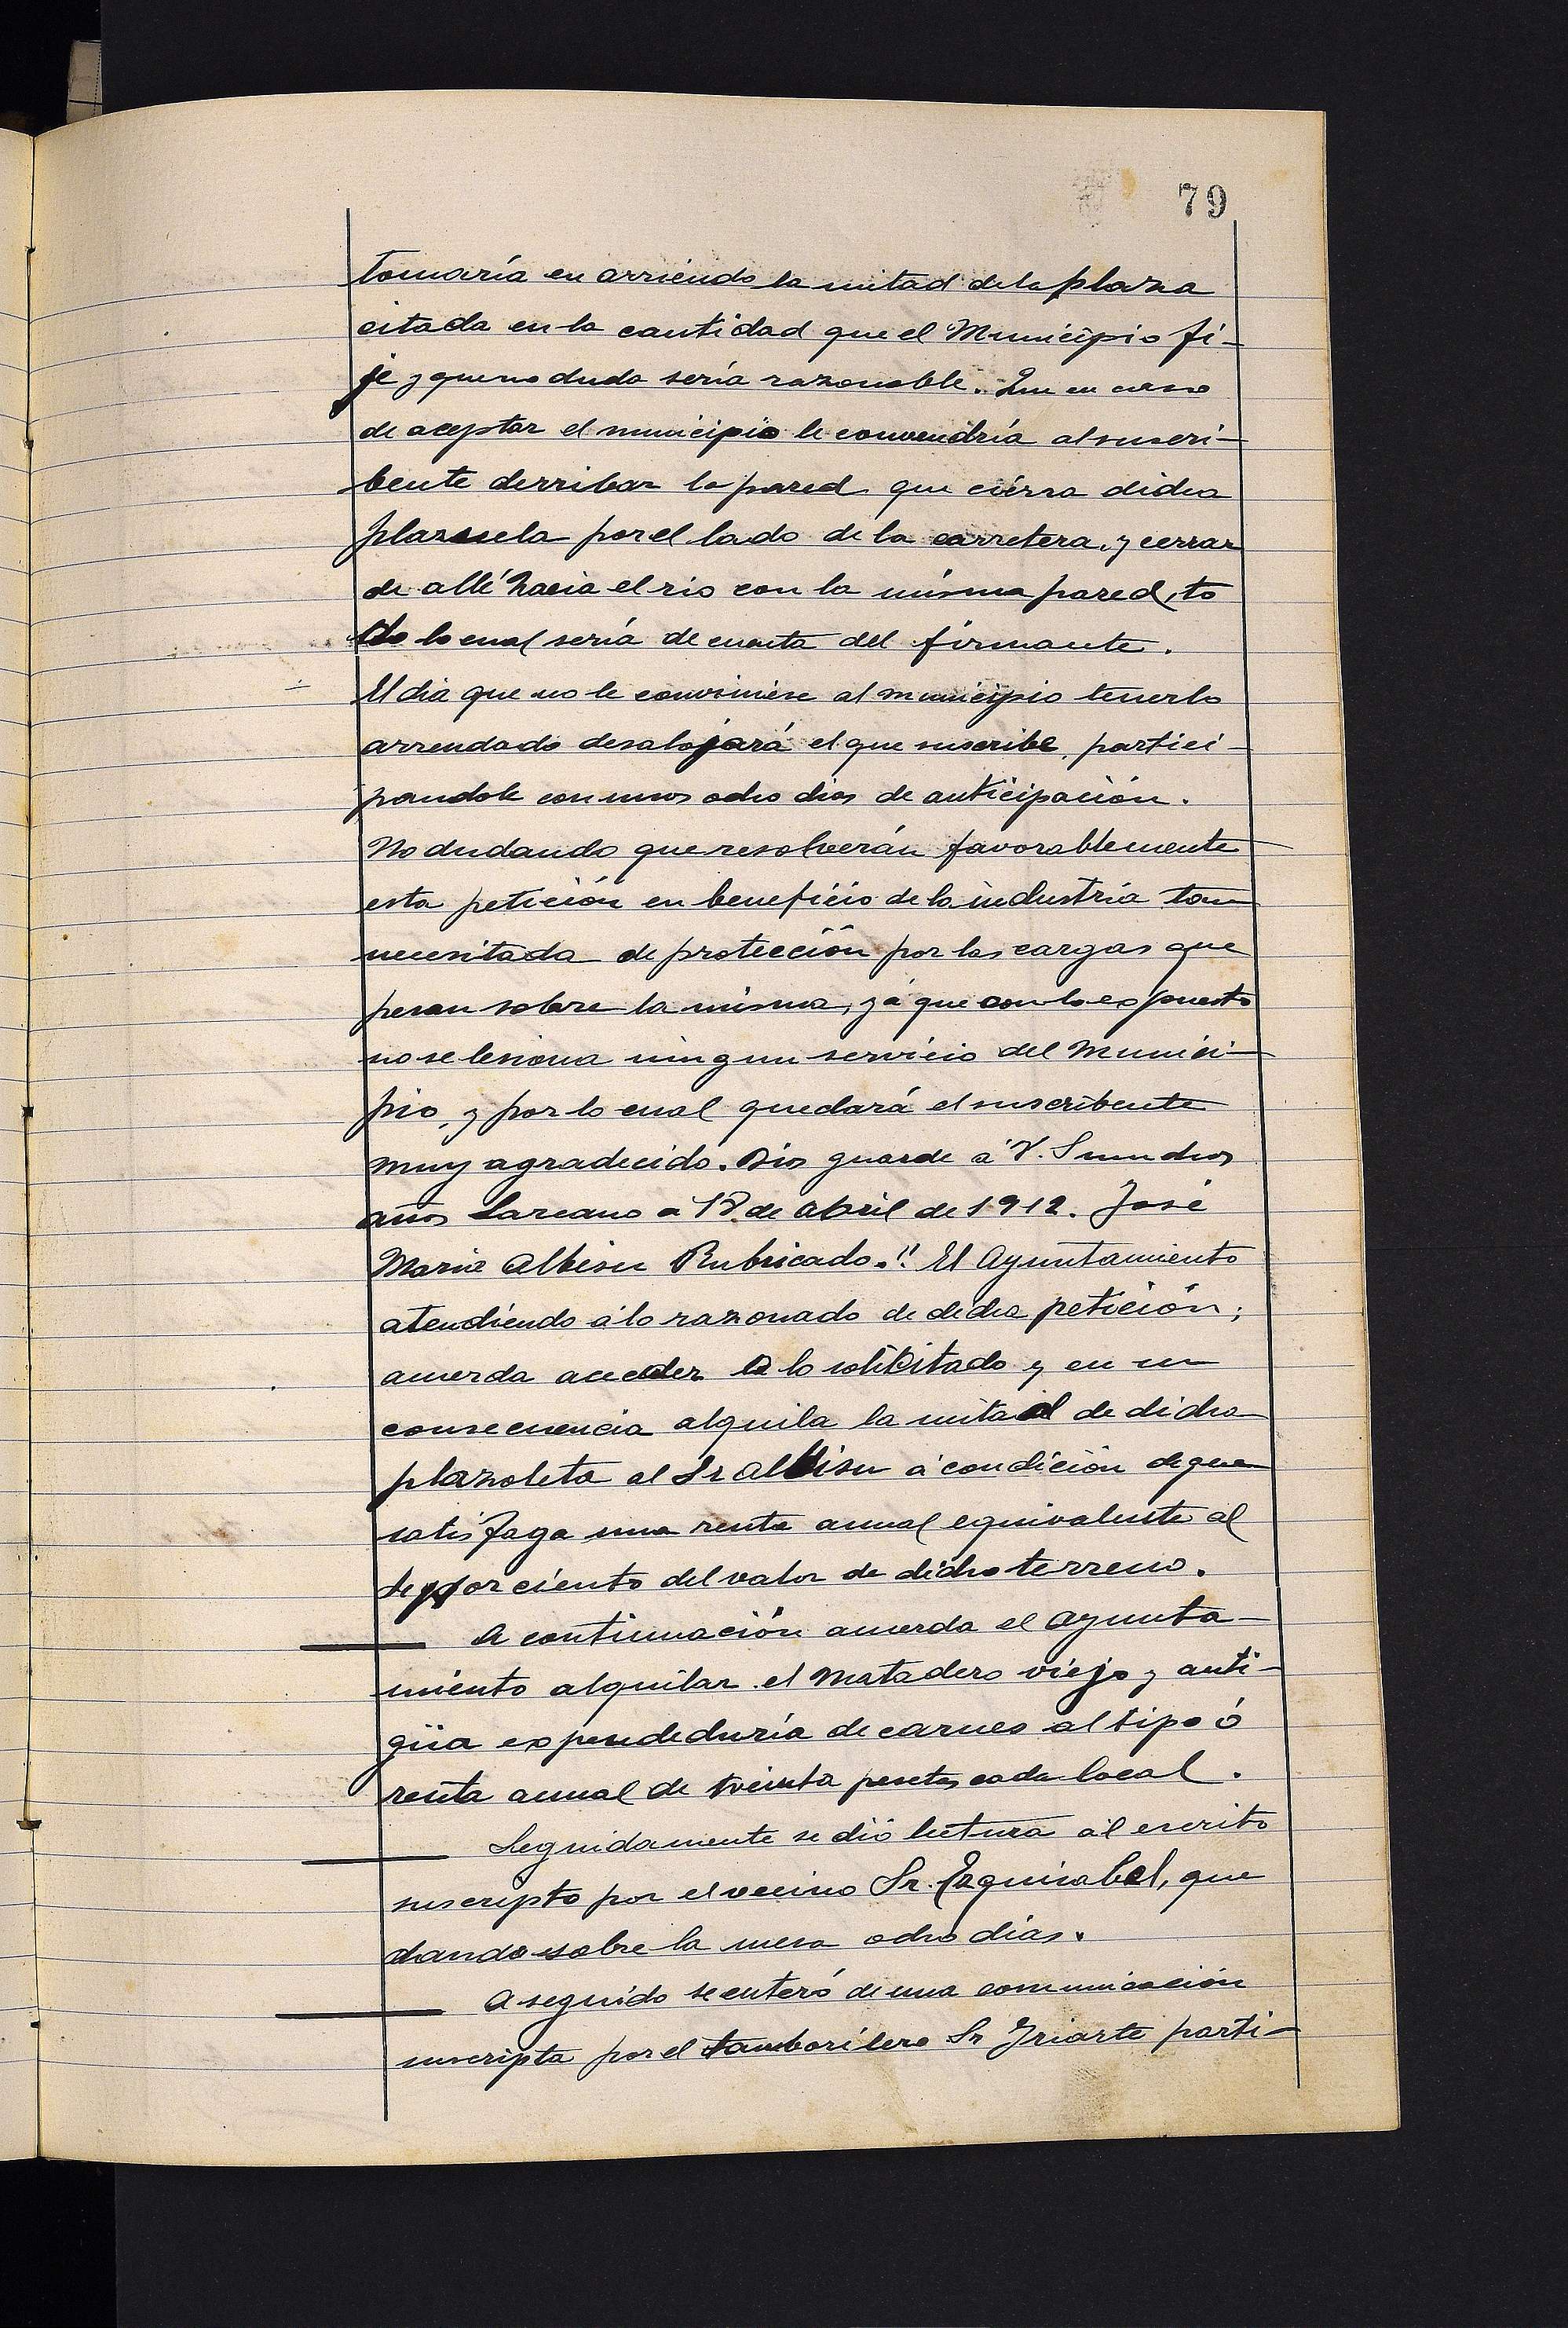 79
tomaría en arriendo la mitad de la plaza
citada en la cantidad que el Municipio fi-
je y que no duda sería razonable. Que en caso
de aceptar el municipio le convendría al suscri-
bente derribar la pared que cierra dicha
plazuela por el lado de la carretera, y cerrar
de allí hacia el rio con la misma pared, to
do lo cual sería de cuenta del firmante.
El dia que no le conviniere al municipio tenerlo
arrendado desalojará el que suscribe, partici-
pandole con unos ocho dias de anticipación.
No dudando que resolverán favorablemente
esta petición en beneficio de la industria tan
necesitada de protección por las cargas que
pesan sobre la misma, yá que con lo expuesto
no se lesiona ningun servicio del Munici-
pio, y por lo cual quedará el suscribente
muy agradecido. Dios guarde á V. S muchos
años Lazcano a 18 de Abril de 1912. José
Maria Albisu Rubricado." El Ayuntamiento
atendiendo á lo razonado de dicha petición;
acuerda acceder a lo solicitado y en su
consecuencia alquila la mitad de dicha
plazoleta al Sr Albisu á condición de que
satisfaga una renta anual equivalente al
por ciento del valor de dicho terreno.
A continuación acuerda el Ayunta-
miento alquilar el Matadero viejo y anti-
güa expendeduría de carnes al tipo ó
renta anual de treinta pesetas cada local.
Seguidamente se dió lectura al escrito
suscripto por el vecino Sr. Ezquisabel, que
dando sobre la mesa ocho días.
A seguido se enteró de una comunicación
suscripta por el tamborilero Sr Iriarte parti-